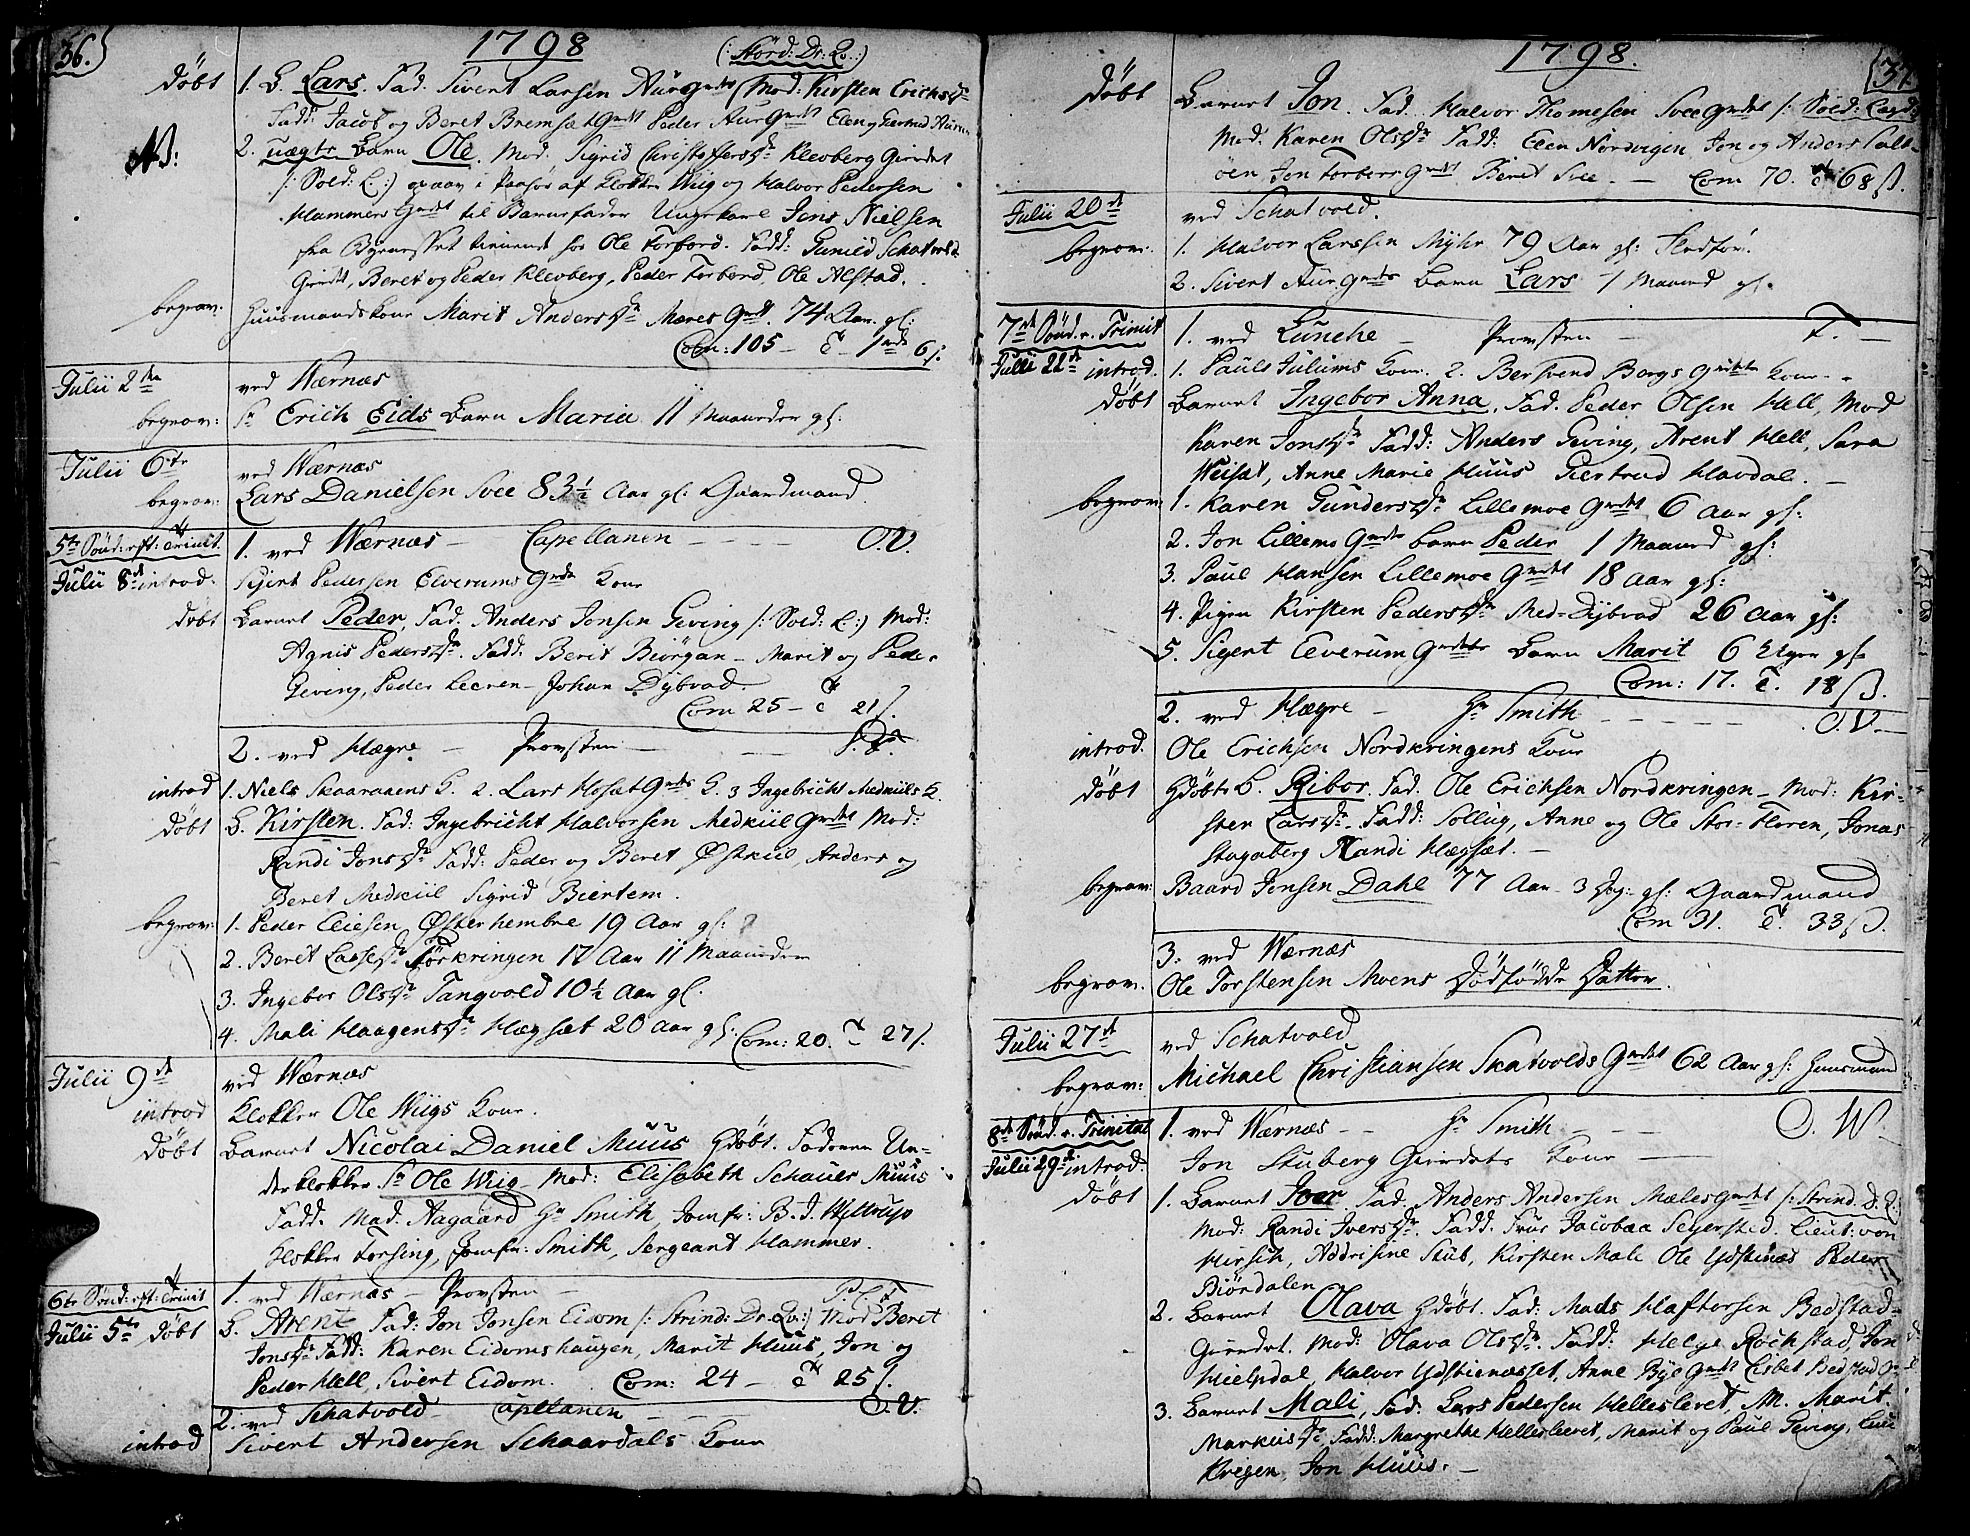 36.
1798
(: Störd: Dr: Qv: :)
döbt 1. B. Lars. Fad. Sivert Larsen Aur Grdet Mod: Kirsten Erichsdr
Fadd: Jacob og Beret Bremset Grdet Peder Aur Grdet Elen og Giertrud Aurn
NB: 2. uægte Barn Ole. Mod. Sigrid Christophersdr Klevberg Grindet
/: Sold: L: :/ af Klokker Wiig og Halvor Pedersen
Hammers Grdet til Barnefader Ungekarl Jens Nielsen
fra tienende hos Ole Forbord. Fadd: Gunild Schatvold
Grindet, Beret og Peder Klevberg, Peder Forbord, Ole Alstad.
begrav: Huusmandskone Marit Andersdr Mæres Grdet. 74 Aar gl:
Com: 105 - 1 6 s.
Julii 2den ved Wærnæs
begrav: Sr Erich Eids Barn Maria 11 Maaneder gl:
Julii 6te ved Wærnæs
begrav: Lars Danielsen Svee 83½ Aar gl: Gaardmand.
5te Sönd: eft: Trinit. 1. ved Wærnæs - Capellanen - - - - O. V.
Julii 8de introd. Sivert Pedersen Elverums Grdet Kone
döbt Barnet Peder, Fad. Anders Jensen Geving /: Sold: L: :/ Mod:
Agnis Pedersdr. Fadd: Berit Biörgan - Marit og Peder
Geving, Peder Leeren - Johan Dybvad.
Com 25 - T 21 s.
2. ved Hægre - Provsten -
introd 1. Niels Skaaraaens K. 2. Lars Hofset Grdets K. 3 Ingebricht Medkiils K.
döbt B. Kirsten. Fad: Ingebricht Halvorsen Medkiil Grdet Mod:
Randi Jonsdr Fadd: Peder og Beret Østkiil, Anders og
Beret Medkiil Sigrid Biertem.
begrav: 1. Peder Eliesen Østerhembre 19 Aar gl:
2. Beret Lassesdr Förkringen 17 Aar 11 Maaneder
3. Ingebor Olsdr Tangvold 10½ Aar gl.
4. Mali Haagensdr Hægset 20 aar gl: Com: 20. T 27 s.
Julii 9de ved Wærnæs
introd Klokker Ole Wiigs Kone.
döbt Barnet Nicolai Daniel Muus Hdöbt. Faderen Un-
derklokker Sr Ole Wiig - Mod: Elisabeth Schauer Muus
Fadd. Mad. Aagaard Hr Smith, Jomfr: B. J. Wiltrup
Klokker Forsing, Jomfr: Smith, Sergeant Hammer.
6te Sönd: eft: Trinit 1. ved Wærnæs - Provsten -
Julii 5te döbt B. Arent Fad: Jon Jonsen Eidom /: Strind: Dr: Qv: :/ Mod Beret
Jonsdr Fadd: Karen Eidomshaugen, Marit Huus, Jon og
Peder Hell, Sivert Eidom. Com: 24 - T 25 s.
2. ved Schatvold - Capellanen - - - O. V.
introd Sivert Andersen Schaardals Kone
1798.
37
döbt Barnet Jon. Fad. Halvor Thomesen Svee Grdet /: Sold:
Mod. Karen Olsdr Fadd: Elen Nordvigen, Jon og Anders Salt-
öen Jon Forbors Grdet Beret Svee. - Com 70. T 68 s.
Julii 20de ved Schatvold.
begrav: 1. Halvor Larssen Myhr 79 Aar gl:
2. Sivert Aur Grdets Barn Lars - 1 Maaned gl.
7de Sönd. e. Trinit 1. ved Lünche - Provsten - T. -
Julii 22de introd. 1. Pauls Julums Kone. 2. Bersvend Borgs Grdets Kone.
döbt Barnet Ingebor Anna. Fad. Peder Olsen Hell, Mod
Karen Jonsdr Fadd: Anders Geving, Arent Hell, Sara
Weisat, Anne Marie Huus Giertrud Havdal. -
begrav 1. Karen Gundersdr Lillemoe Grdet 6 Aar gl:
2. Jon Lillemo Grdets Barn Peder 1 Maaned gl:
3. Paul Hansen Lillemoe Grdet 18 Aar gl:
4. Pigen Kirsten Pedersdr Med-Dybvad 26 Aar gl:
5. Sivert Elverum Grdets Barn Marit 6 Uger gl.
Com: 17. T. 18 s.
2. ved Hægre - Hr Smith - - - - O. V. -
introd. Ole Erichsen Nordkringens Kone
döbt Hdöbt B. Ribor. Fad. Ole Erichsen Nordkringen - Mod: Kir-
sten Larsdr. Fadd: Sollug, Anne og Ole Stor-Floren, Jonas
Stagaberg Randi Hægset. -
begrav: Baard Jensen Dahl 77 Aar - 3 gl: Gaardmand
Com 31. T. 33 s.
3. ved Wærnæs
begrav: Ole Torstensen Moens Dödfödde Datter.
Julii 27de ved Schatvold
begrav: Michael Christiansen Skatvolds Grdet 62 Aar gl: Huusmand
8de Sönd. e. Trinitat 1. ved Wærnæs - - Hr Smith - - - O. W. -
Julii 29de introd. Jon Stuberg Grindets Kone -
döbt 1. Barnet Iver Fad. Anders Andersen Mæles Grdet /: Strind. D. Q:
Mod: Randi Iversdr. Fadd. Frue Jacobaa Sejersted, Lieut: von
Hirsch, Addrisine Stub, Kirsten Mali Ole Ydstines Peder
Biördalen
2. Barnet Olava Hdöbt. Fad: Mads Haftorsen Bedstad-
Grindet. Mod: Olava Olsdr. Fadd: Helge Rochstad, Jon
Hielpdal, Halvor Ydstienæsset, Anne Bye Grdet Lisbet Bedstad
3. Barnet Mali, Fad: Lars Pedersen Hellesleret, M. Marit
Markusdr Fadd: Margrethe Hellesleeret, Marit og Paul Geving,
Krigen, Jon Huus. -